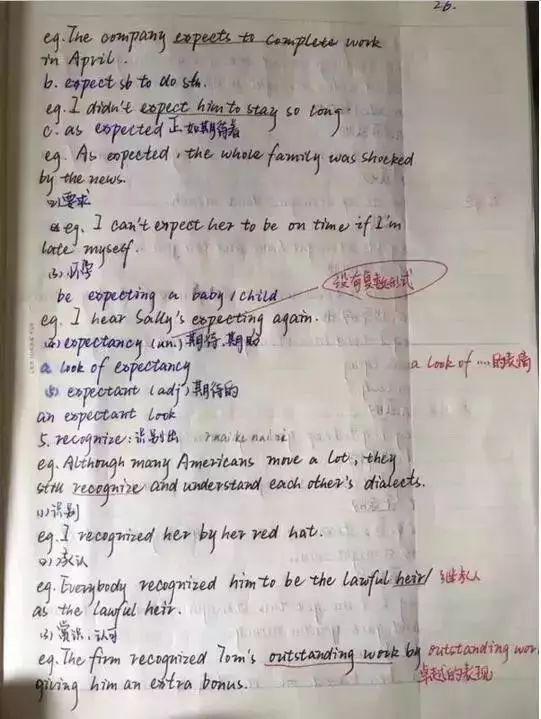 26.
eg. The company expects to complete work
in April.
b. expect sb to do sth.
eg. I didn't expect him to stay so long.
c. as expected 正如期待着
eg. As expected, the whole family was shocked
by the news.
(2)要求
eg. I can't expect her to be on time if I'm
late myself.
(3)怀孕
be expecting a baby/child
没有复数形式
eg. I hear Sally's expecting again.
expectancy (un.) 期待.期盼
a look of expectancy
a look of ....的表情
expectant (adj) 期待的
an expectant look
5. recognize: 识别出
eg. Although many Americans move a lot, they
still recognize and understand each other's dialects.
(1)识别
eg. I recognized her by her red hat.
(2)承认
eg. Everybody recognized him to be the lawful heir/ 继承人
as the lawful heir.
(3)赏识.认可
eg. The firm recognized Tom's outstanding work by outstanding wor
giving him an extra bonus. 卓越的表现